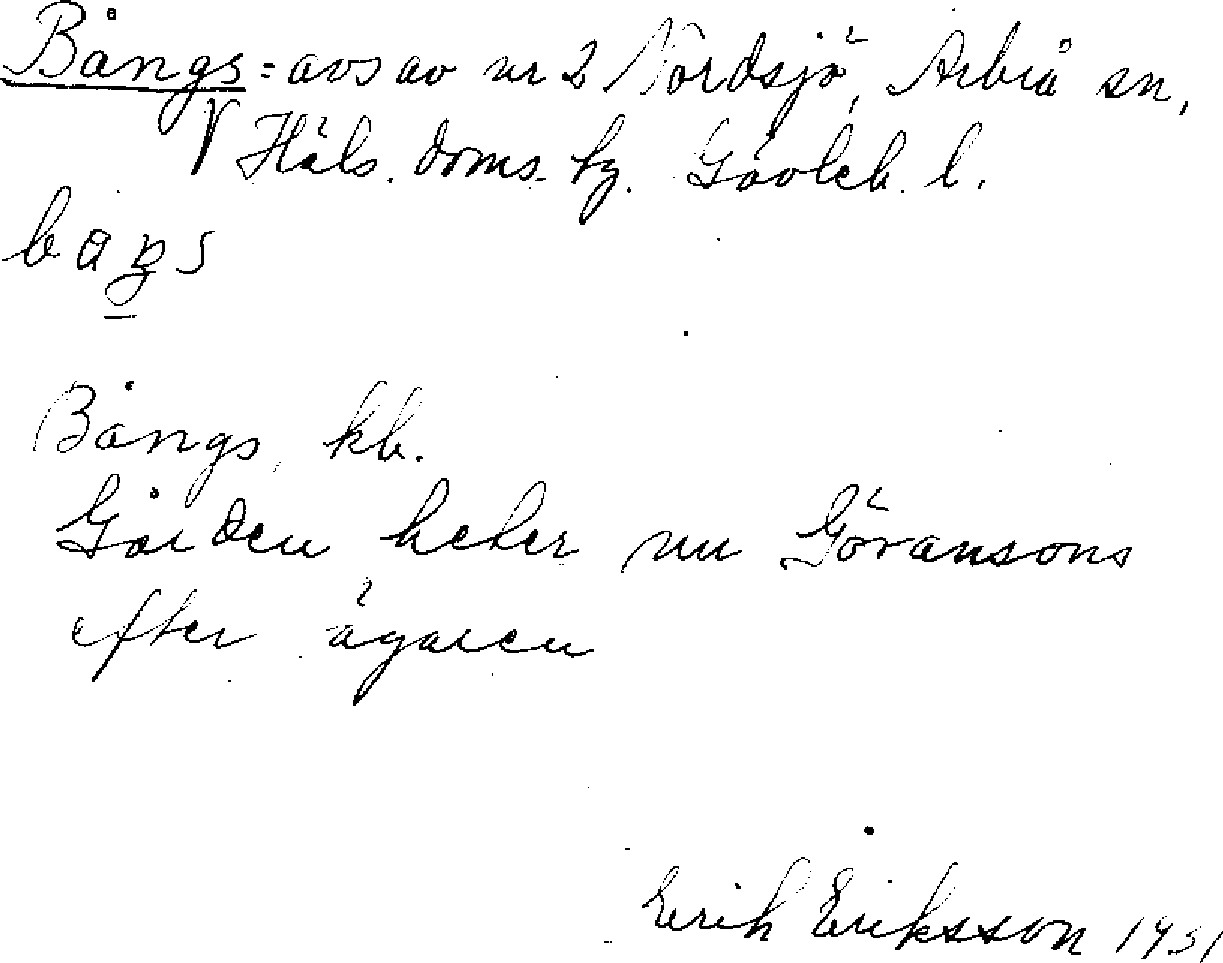 Bångs = avs av nr 2 Nordsjö, Arbrå sn,
V Häls. doms. hg. Gävleb. l.
Bångs, kb.
Gården heter nu Göransons
efter ägaren
Erik Eriksson 1931